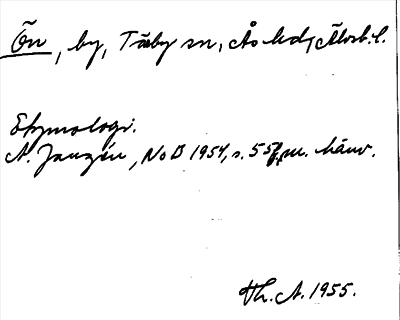 Ön, by, Tåby sn, Ås hd, Älvsb. l.
Etymologi.
A. Janzén, NoB 1954, s. 55f, m. hänv.
Th. A. 1955.